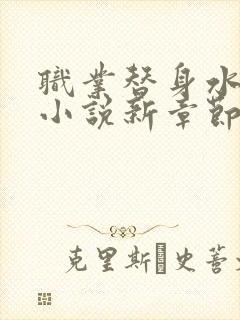 職業替身水
小說新章節
克里斯 史蒈